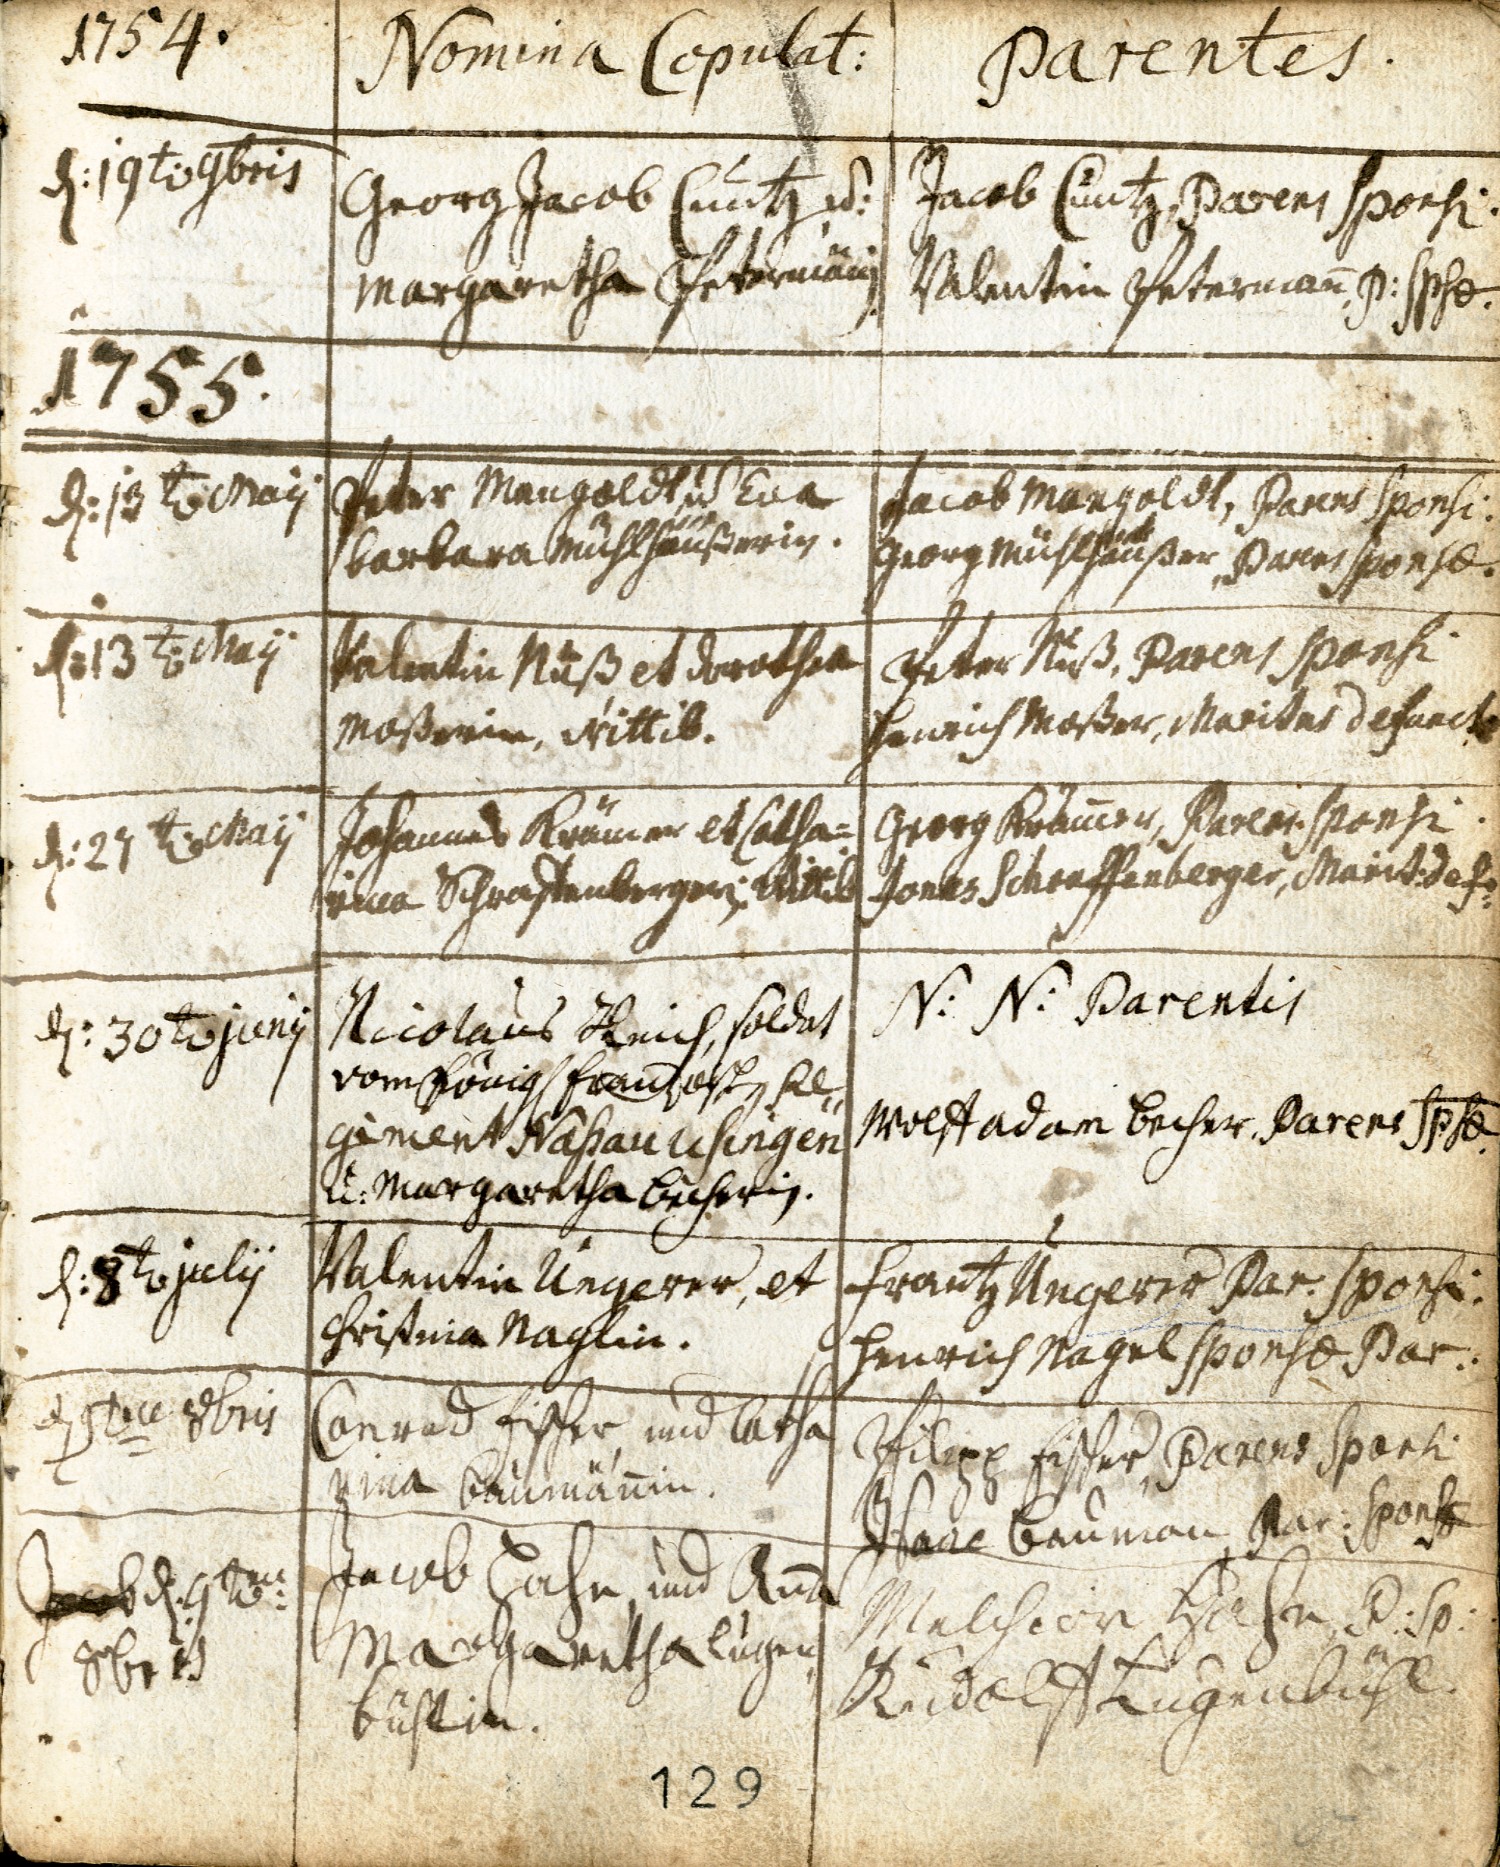 1754.
Nomina Copulat:
Parentes.
d: 19t 9bris
Georg Jacob Cuntz ud:
Margaretha Petermänin
Jacob Cuntz, Parens Sponsi.
Valentin Petermann, P: Spsæ.
1755.
d: 13t Maij
Peter Mangoldt ud Eva
barbara Mühlhäußerin.
Jacob Mangoldt, Parens Sponsi:
Georg Mühlhäußer, Parens Sponsæ.
d: 13t Maij
Valentin Nuß et dorothea
Moßerin, Wittib.
Peter Nuß, Parens Sponsi
Henrich Moßer, Maritus defunct
d: 27t Maij
Johannes Krämer et Catha=
rina Schraffenbergerin, Wittib
Georg Krämer, Parens Sponsi.
Jonas Schraffenberger, Marit: def:
d: 30t junij
Nicolaus Reich, soldat
vom Königl frantzösch Re=
giment Naßau Usingen
u: Margaretha becherin.
N: N: Parentis
Wolff adam becher, Parens Spsæ.
d: 8t julij
Valentin Ungerer, et
Christina Naglin.
Frantz Ungerer Par: Sponsi:
Henrich Nagel Sponsæ Par:
d 8bris
Conrad Fischer, und Catha
rina baumännin.
Philipp Fischer, Parens Sponsi
Isaac bauman, Par: Sponsæ
d. 9t
8bris
Jacob Hahn, und Anna
Margaretha Lugen
bühlin.
Melchior Hahn, P: Sp:
Rudolff Lugenbühl.
129